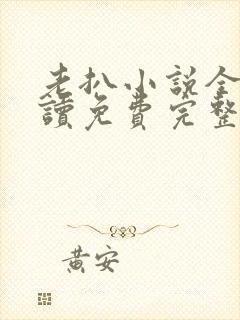 老扒小说全
讀免費完整
黃安